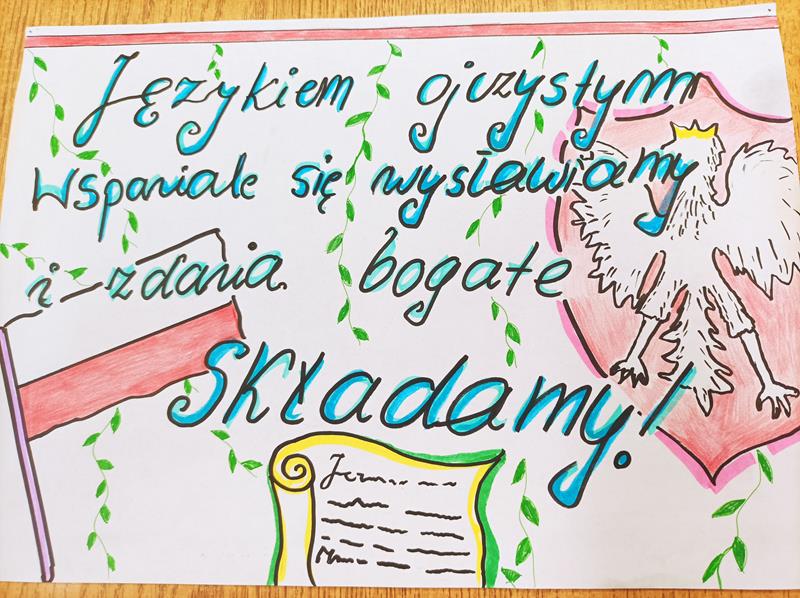 Językiem ojczystym
Wspaniale się wysławiamy
i zdania bogate
Składamy!